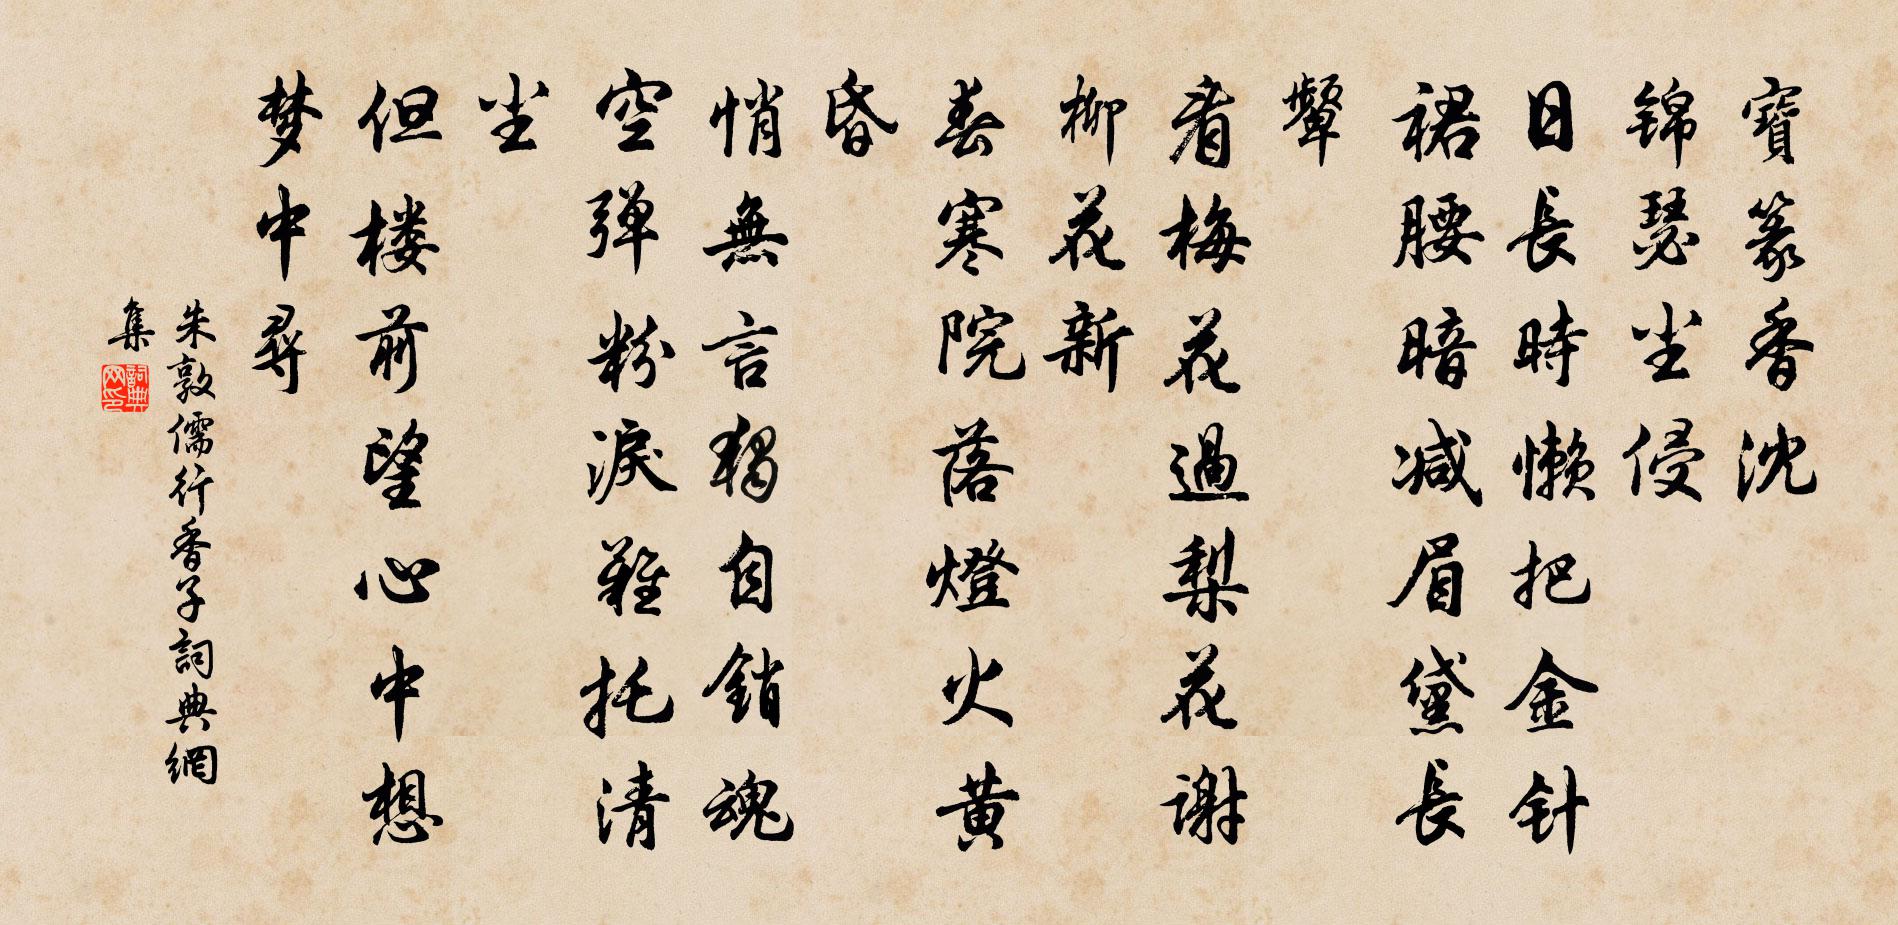 寶篆香沈
锦瑟尘侵
日長時懒把金针
裙腰暗减眉黛長
颦
看梅花過梨花謝
柳花新
春寒院落燈火黄
昏
悄無言独自銷魂
空弹粉淚難托清
尘
但楼前望心中想
梦中尋
朱敦儒行香子詞典網
集
詞典网印